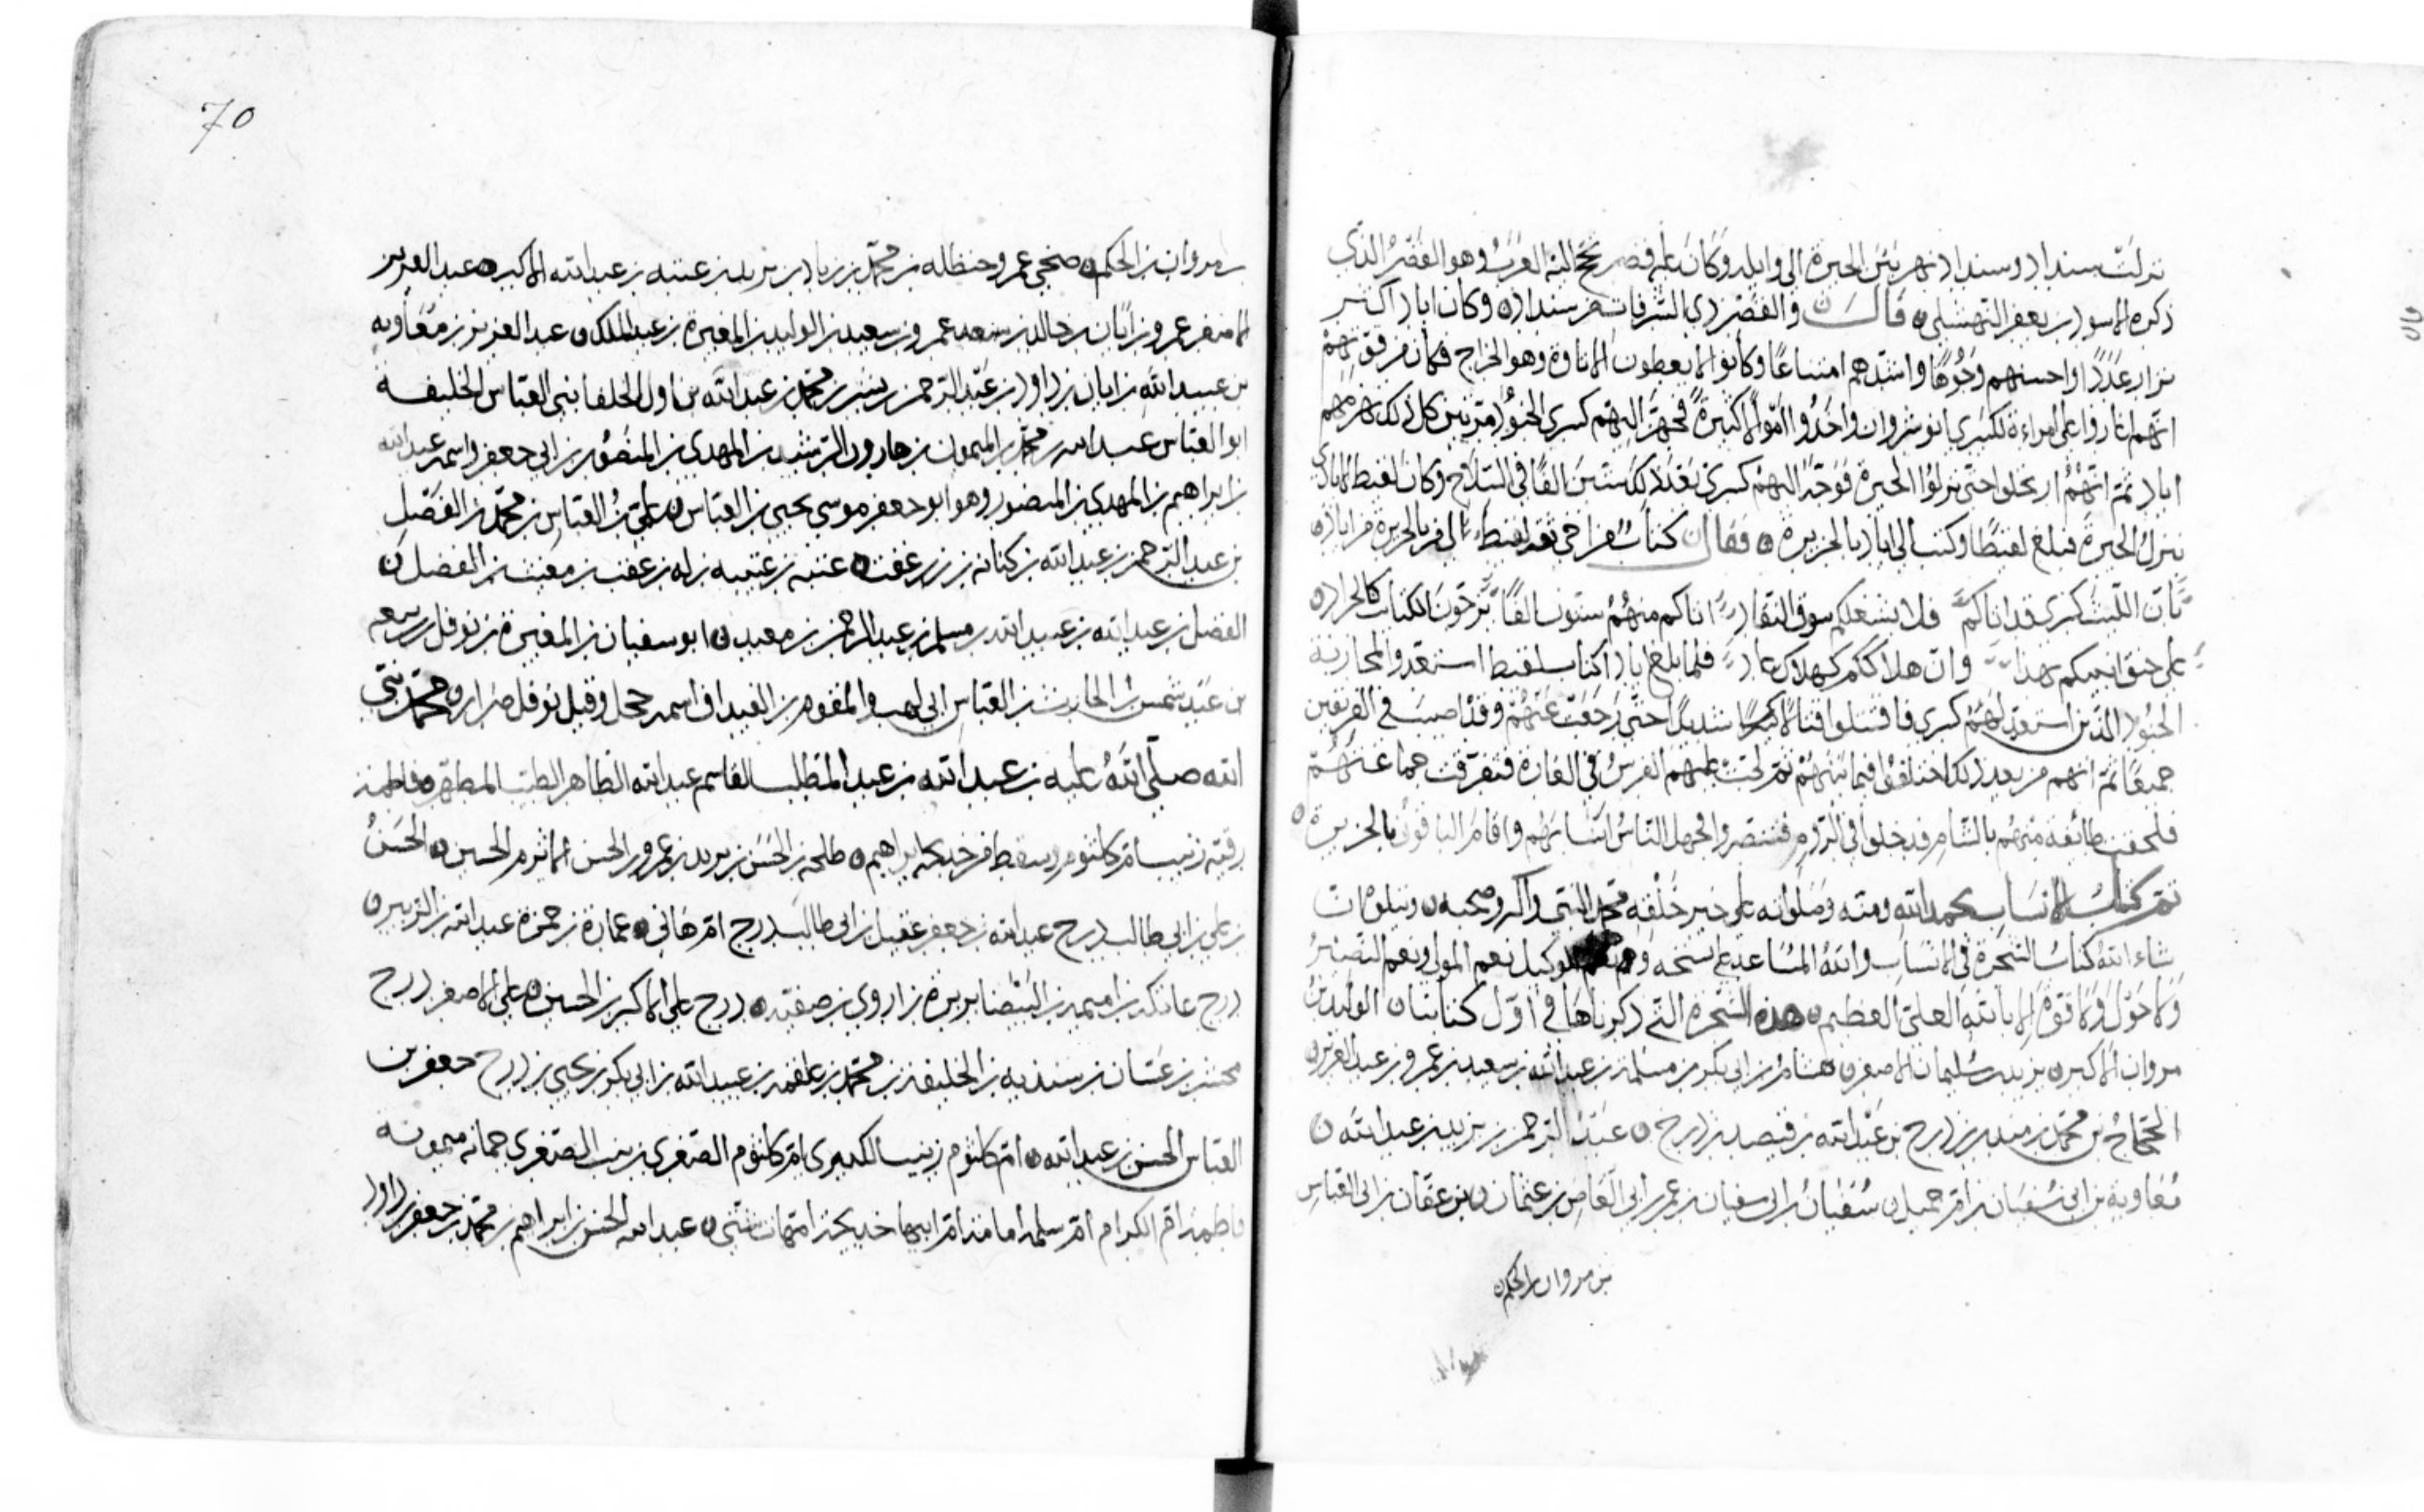 نزلت سنداد وسنداد نهر بين الحيرة الى وايله وكان عليه قصر تحج اليه العرب وهو القصر الذي
ذكره الاسود بن يعفر النهشلي قال والقصر ذي الشرفات من سنداد وكان اياد اكثر
نزار عددا واحسنهم وجوها واشدهم امتناعا وكانوا لا يعطون الاتاوة وهو الخراج فكان من قوتهم
انهم اغاروا على امراءة لكسرى انوشروان واخذوا اموالا كثيرة فجهز اليهم كسرى الجنود مرتين كل ذلك تهزمهم
اياد ثم انهم ارتحلوا حتى نزلوا الحيرة فوجه اليهم كسرى بعد ذلك ستين الفا في السلاح وكان لقيط الايادي
ينزل الحيرة فبلغ لقيطا وكتب الى اياد بالجزيرة فقال كتاب من اخي ثقة لقيط الى من بالجزيرة من اياد
بان الليث كسرى قد اتاكم فلا يشغلكم سوق النقاد اتاكم منهم ستون الفا يزجون الكتائب كالجراد
على حنق اتيتكم بهذا وان هلاككم كهلاك عاد فلما بلغ ايادا كتاب لقيط استعدوا لمحاربة
الجنود الذين استعد لهم كسرى فاقتتلوا قتالا شديدا حتى رجعت عنهم وقد اصيب في الفريقين
جميعا ثم انهم من بعد ذلك اختلفوا فيما بينهم ثم لحت عليهم الفرس في الغارة فتفرقت جماعتهم
فلحقت طائفة منهم بالشام فدخلوا في الروم فتنصروا فجهل الناس انسابهم واقام الباقون بالجزيرة
تم كتاب الانساب بحمد الله ومنه وصلواته على خير خلقه محمد النبي واله وصحبه ويتلوه ان
شاء الله كتاب الشجرة في الانساب والله المساعد على نسخه ونعم الوكيل نعم المولى ونعم النصير
ولا حول ولا قوة الا بالله العلي العظيم هذه الشجرة التي ذكرناها في اول كتابنا الوليد بن
مروان الاكبر يزيد سليمان الاصغر هشام بن ابي بكر بن مسلمة بن عبد الله بن سعيد بن عمرو بن عبد العزيز
الحجاج بن محمد بن منذر بن درج بن عبد الله بن قبيصة بن درج عبد الرحمن بن يزيد بن عبد الله
معاوية بن ابي سفيان بن ام جميل سفيان بن ابي سفيان بن عمر بن ابي العاص بن عثمان بن عفان بن ابي العباس
بن مروان بن الحكم
70
بن مروان بن الحكم عمرو حنظله بن محمد بن زياد بن يزيد بن عتبه بن عبد الله الاكبر عبد العزيز
الاصغر عمرو بن ابان بن خالد بن سعيد عمرو بن سعيد بن الوليد بن المغيرة بن عبد الملك عبد العزيز بن معاويه
بن عبيد الله بن ابان بن داود بن عبد الرحمن بن بشر بن محمد بن عبد الله اول الخلفا بني العباس الخليفه
ابو العباس عبد الله بن محمد بن الميمون بن هارون الرشيد بن المهدي بن المنصور بن ابي جعفر واسمه عبد الله
بن ابراهيم بن المهدي بن المنصور وهو ابو جعفر موسى يحيى بن العباس علي بن العباس بن محمد بن الفضل
بن عبد الرحمن بن عبد الله بن كنانه بن عتبه بن عتيبه بن معتب بن الفضل
الفضل بن عبد الله بن عبيد الله بن مسلم بن عبد الرحمن بن معبد ابو سفيان بن المغيرة بن نوفل بن ربيعه
بن عبد شمس بن الحارث بن العباس ابي لهب والمقوم بن الغيداق اسمه حجل وقيل نوفل ضرار محمد نبي
الله صلى الله عليه بن عبد الله بن عبد المطلب القاسم عبد الله الطاهر الطيب المطهر وفاطمه
رقيه زينب ام كلثوم وسقط من خديجه ابراهيم طلحه بن الحسن بن يزيد بن عمرو بن الحسن الاثرم الحسين الحسن
بن علي بن ابي طالب درج عبد الله بن جعفر عقيل بن ابي طالب درج ام هاني عمارة بن حمزة عبد الله بن الزبير
درج عاتكه بن اميمه بن البيضا بريرة بن اروى بن صفيه درج علي الاكبر بن الحسين علي الاصغر درج
محسن بن غسان بن الخليفه بن محمد بن علقمه بن عبيد الله بن ابي بكر بن يحيى بن درج جعفر بن
العباس الحسن بن عبد الله ام كلثوم زينب الكبرى ام كلثوم الصغرى زينب الصغرى جمانه ميمونه
فاطمه ام الكرام ام سلمه امامه ام ابيها خديجه امهات شتى عبد الله الحسن بن ابراهيم بن محمد بن جعفر داود